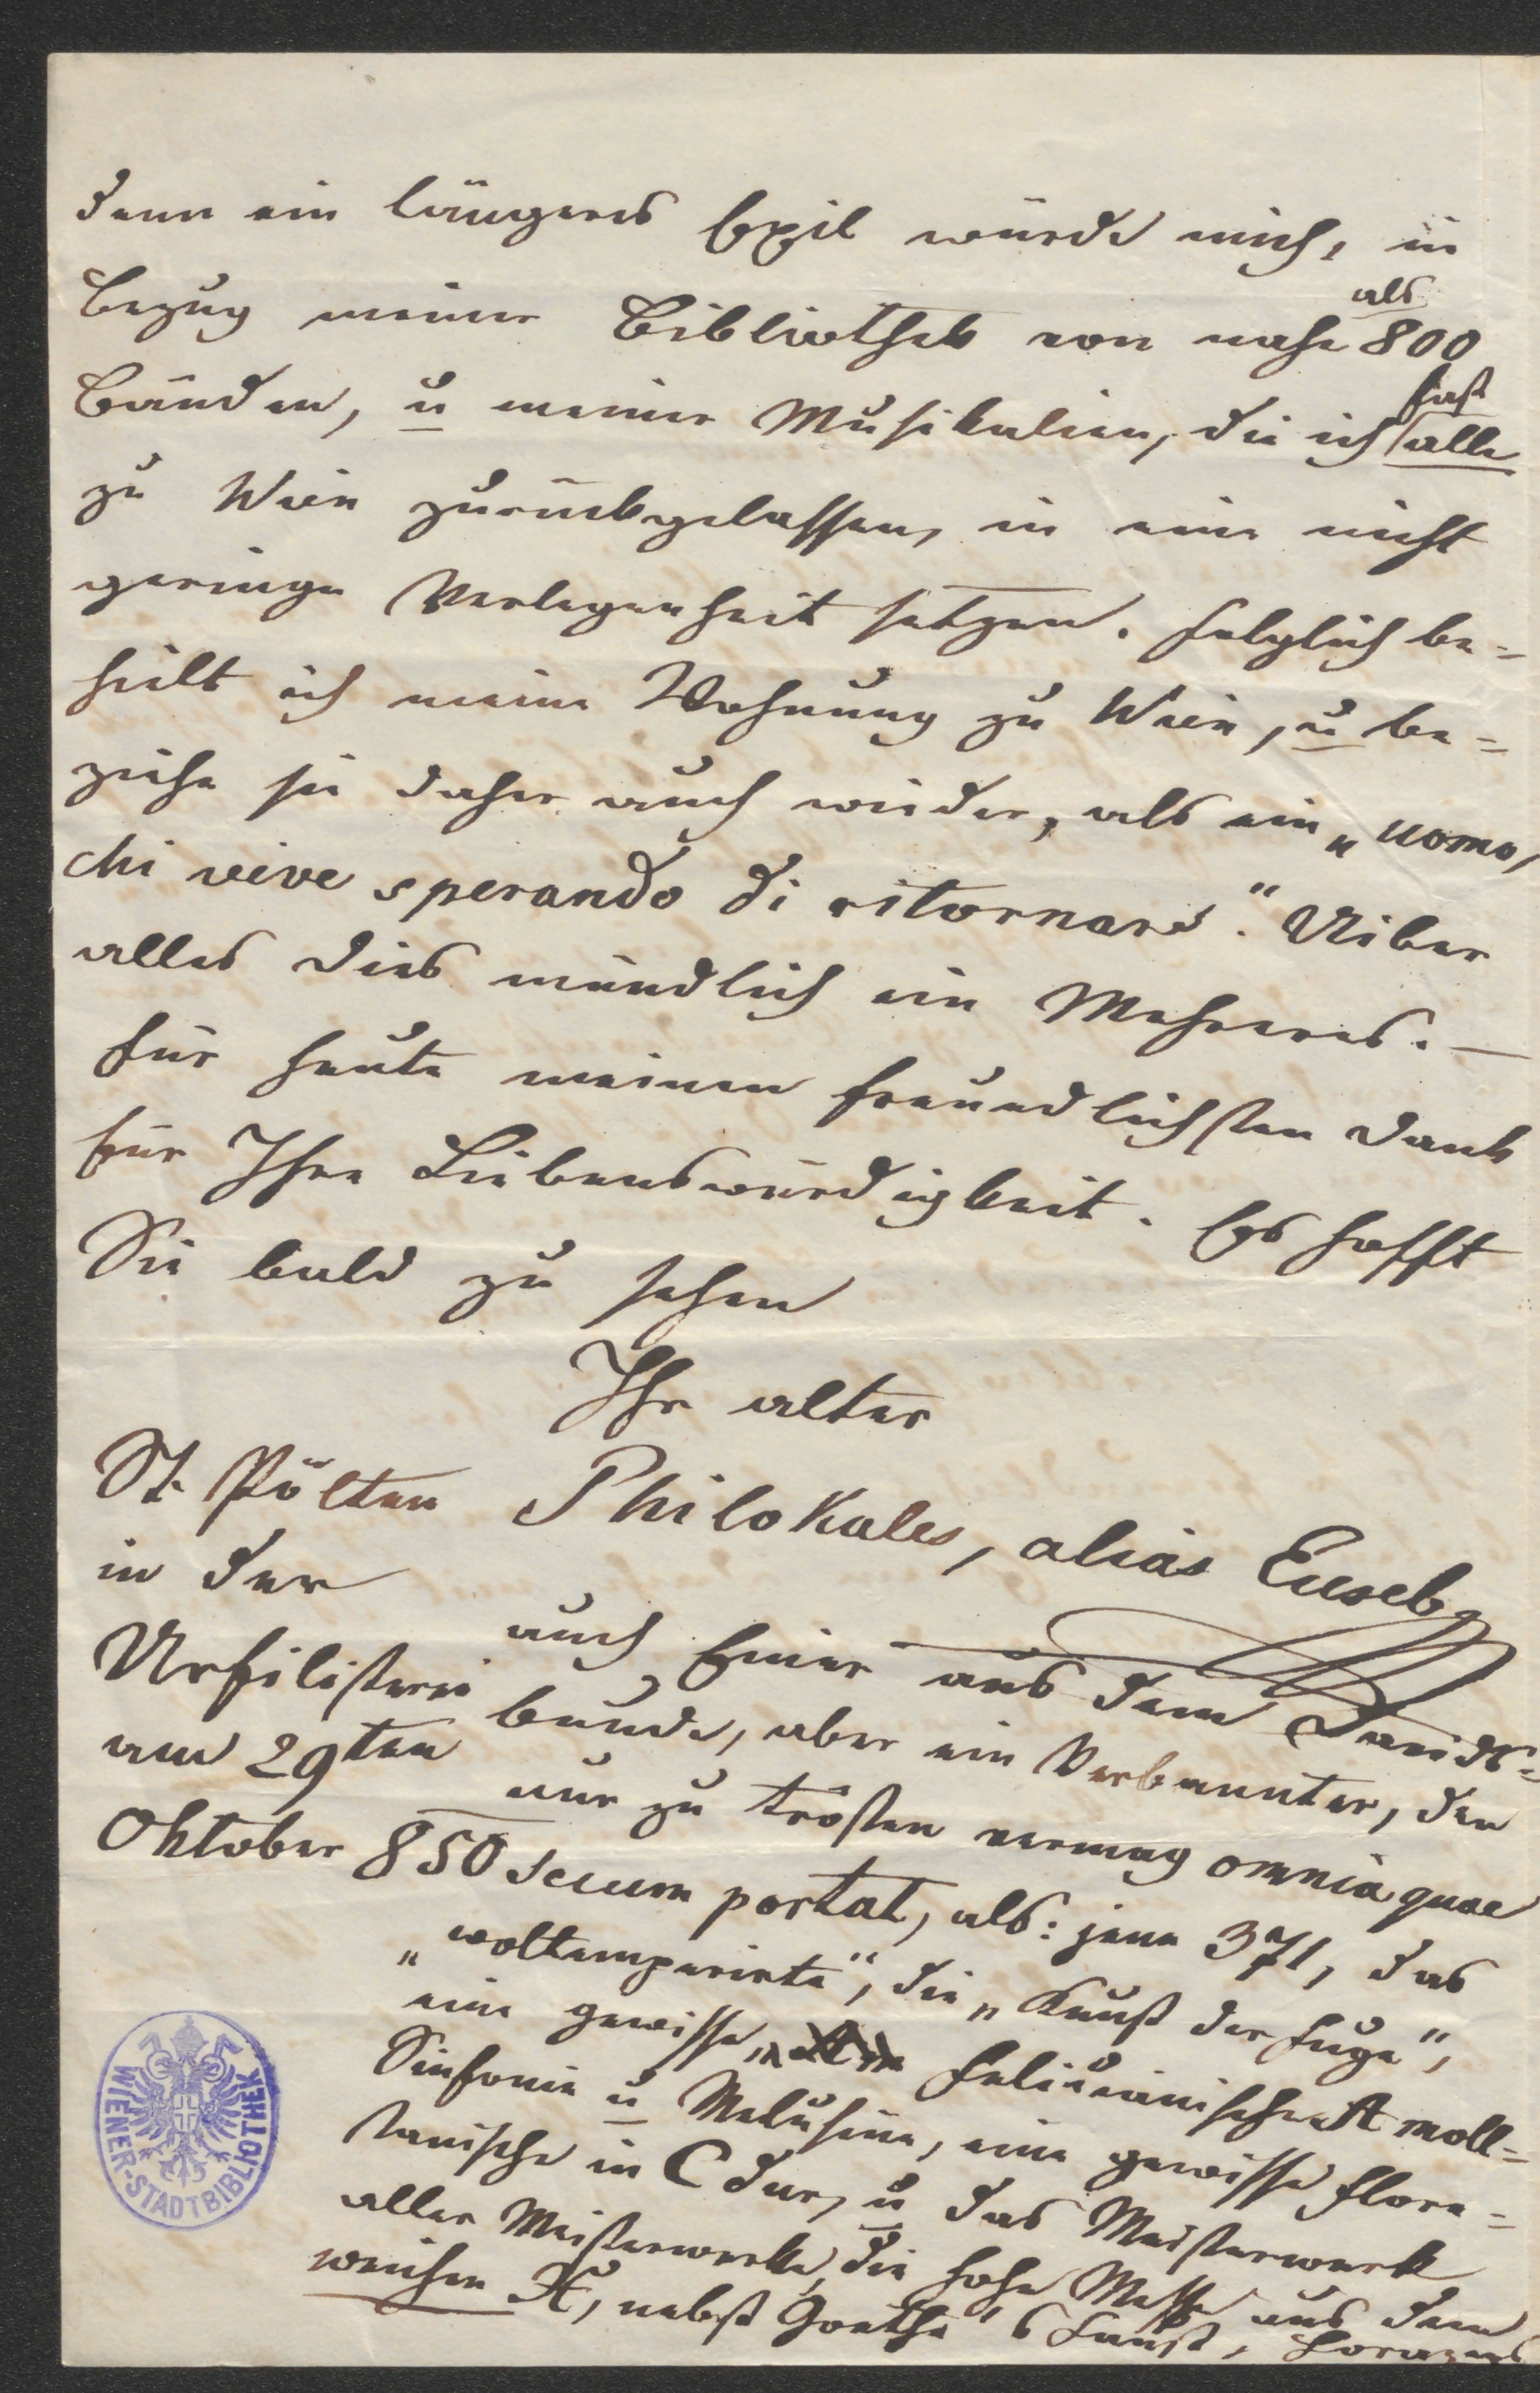 denn ein längeres Exil würde mich, in
als
Bezug meiner Bibliothek von nahe 800
fast
Bänden, u meiner Musikalien, die ich alle
zu Wien zurückgelassen, in eine nicht
geringe Verlegenheit setzen. Folglich be=
hielt ich meine Wohnung zu Wien, u be=
ziehe sie daher auch wieder, als ein „uomo,
chi vive sperando di ritornare“. Uiber
alles dies mündlich ein Mehreres. —
Für heute meinen freundlichsten Dank
für Ihre Liebenswürdigkeit. Es hofft
Sie bald zu sehen
Ihr alter
Philokales, alias Euseb,
auch Einer aus dem Davids=
bunde, aber ein Verbannter, den
nur zu trösten vermag omnia quae
secum portat, als: jene 371, das
„woltemperirte“, die „Kunst der Fuge“,
eine gewisse Felicianische A moll=
Sinfonie u Melusine, eine gewisse flore=
stanische in C dur, u das Meisterwerk
aller Meisterwerke, die hohe Messe aus dem
weichen H, nebst Goethe's Faust,
St. Pölten
in der
Urfilisterei
am 29ten
Oktober 850
WIENER-STADTBIBLIOTHEK